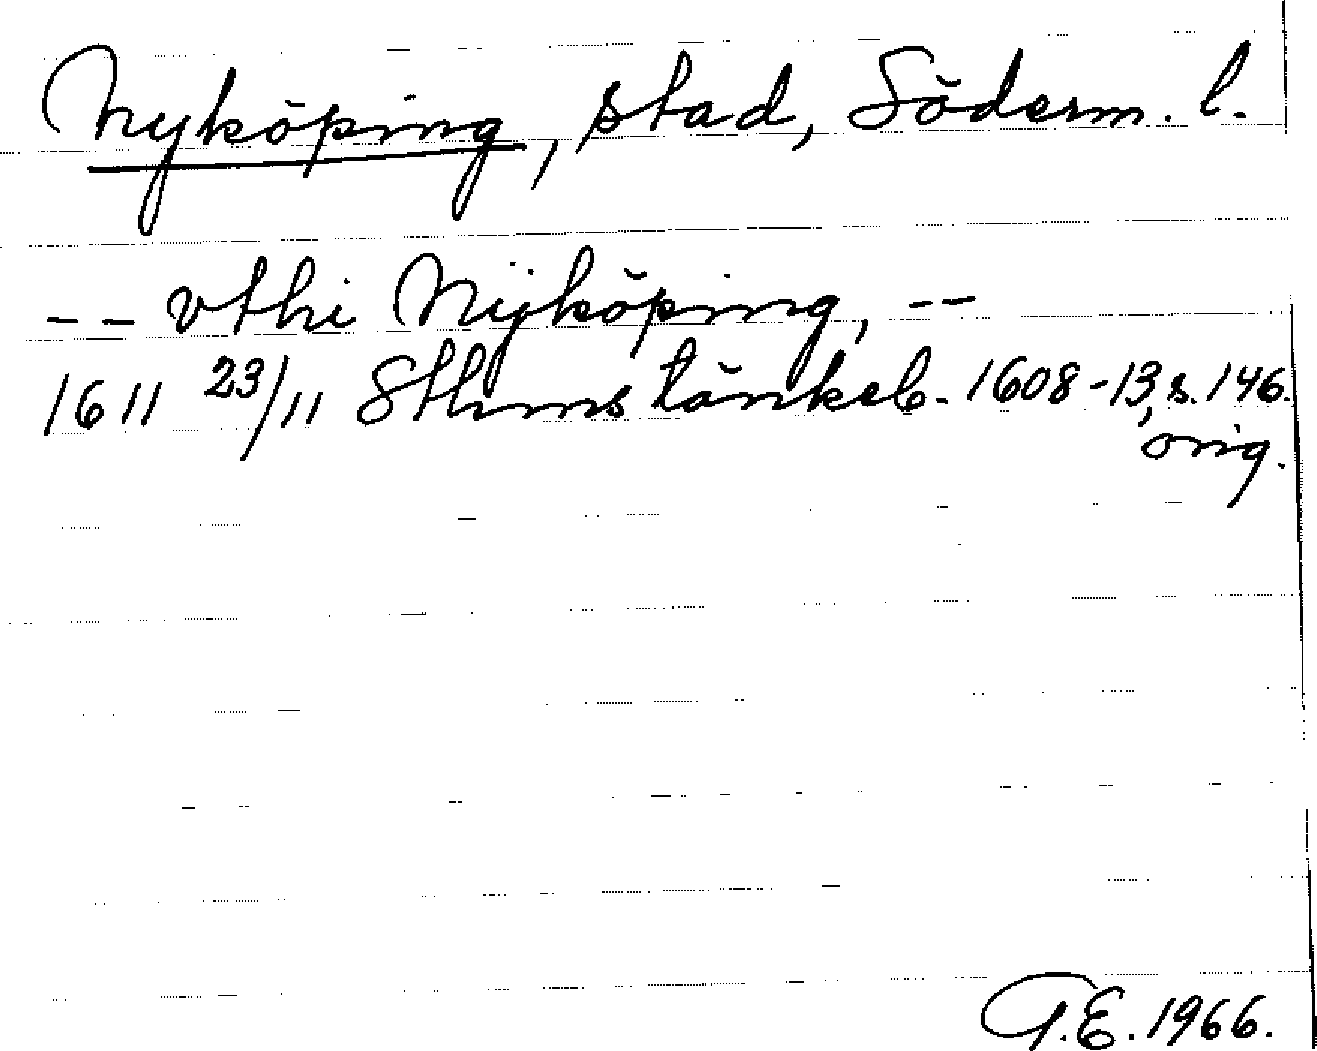 Nyköping, stad, Söderm. l.
-- vthi Nÿköping, --
1611 23/11 Sthms tänkeb. 1608-13, s. 146.
orig.
G.E. 1966.